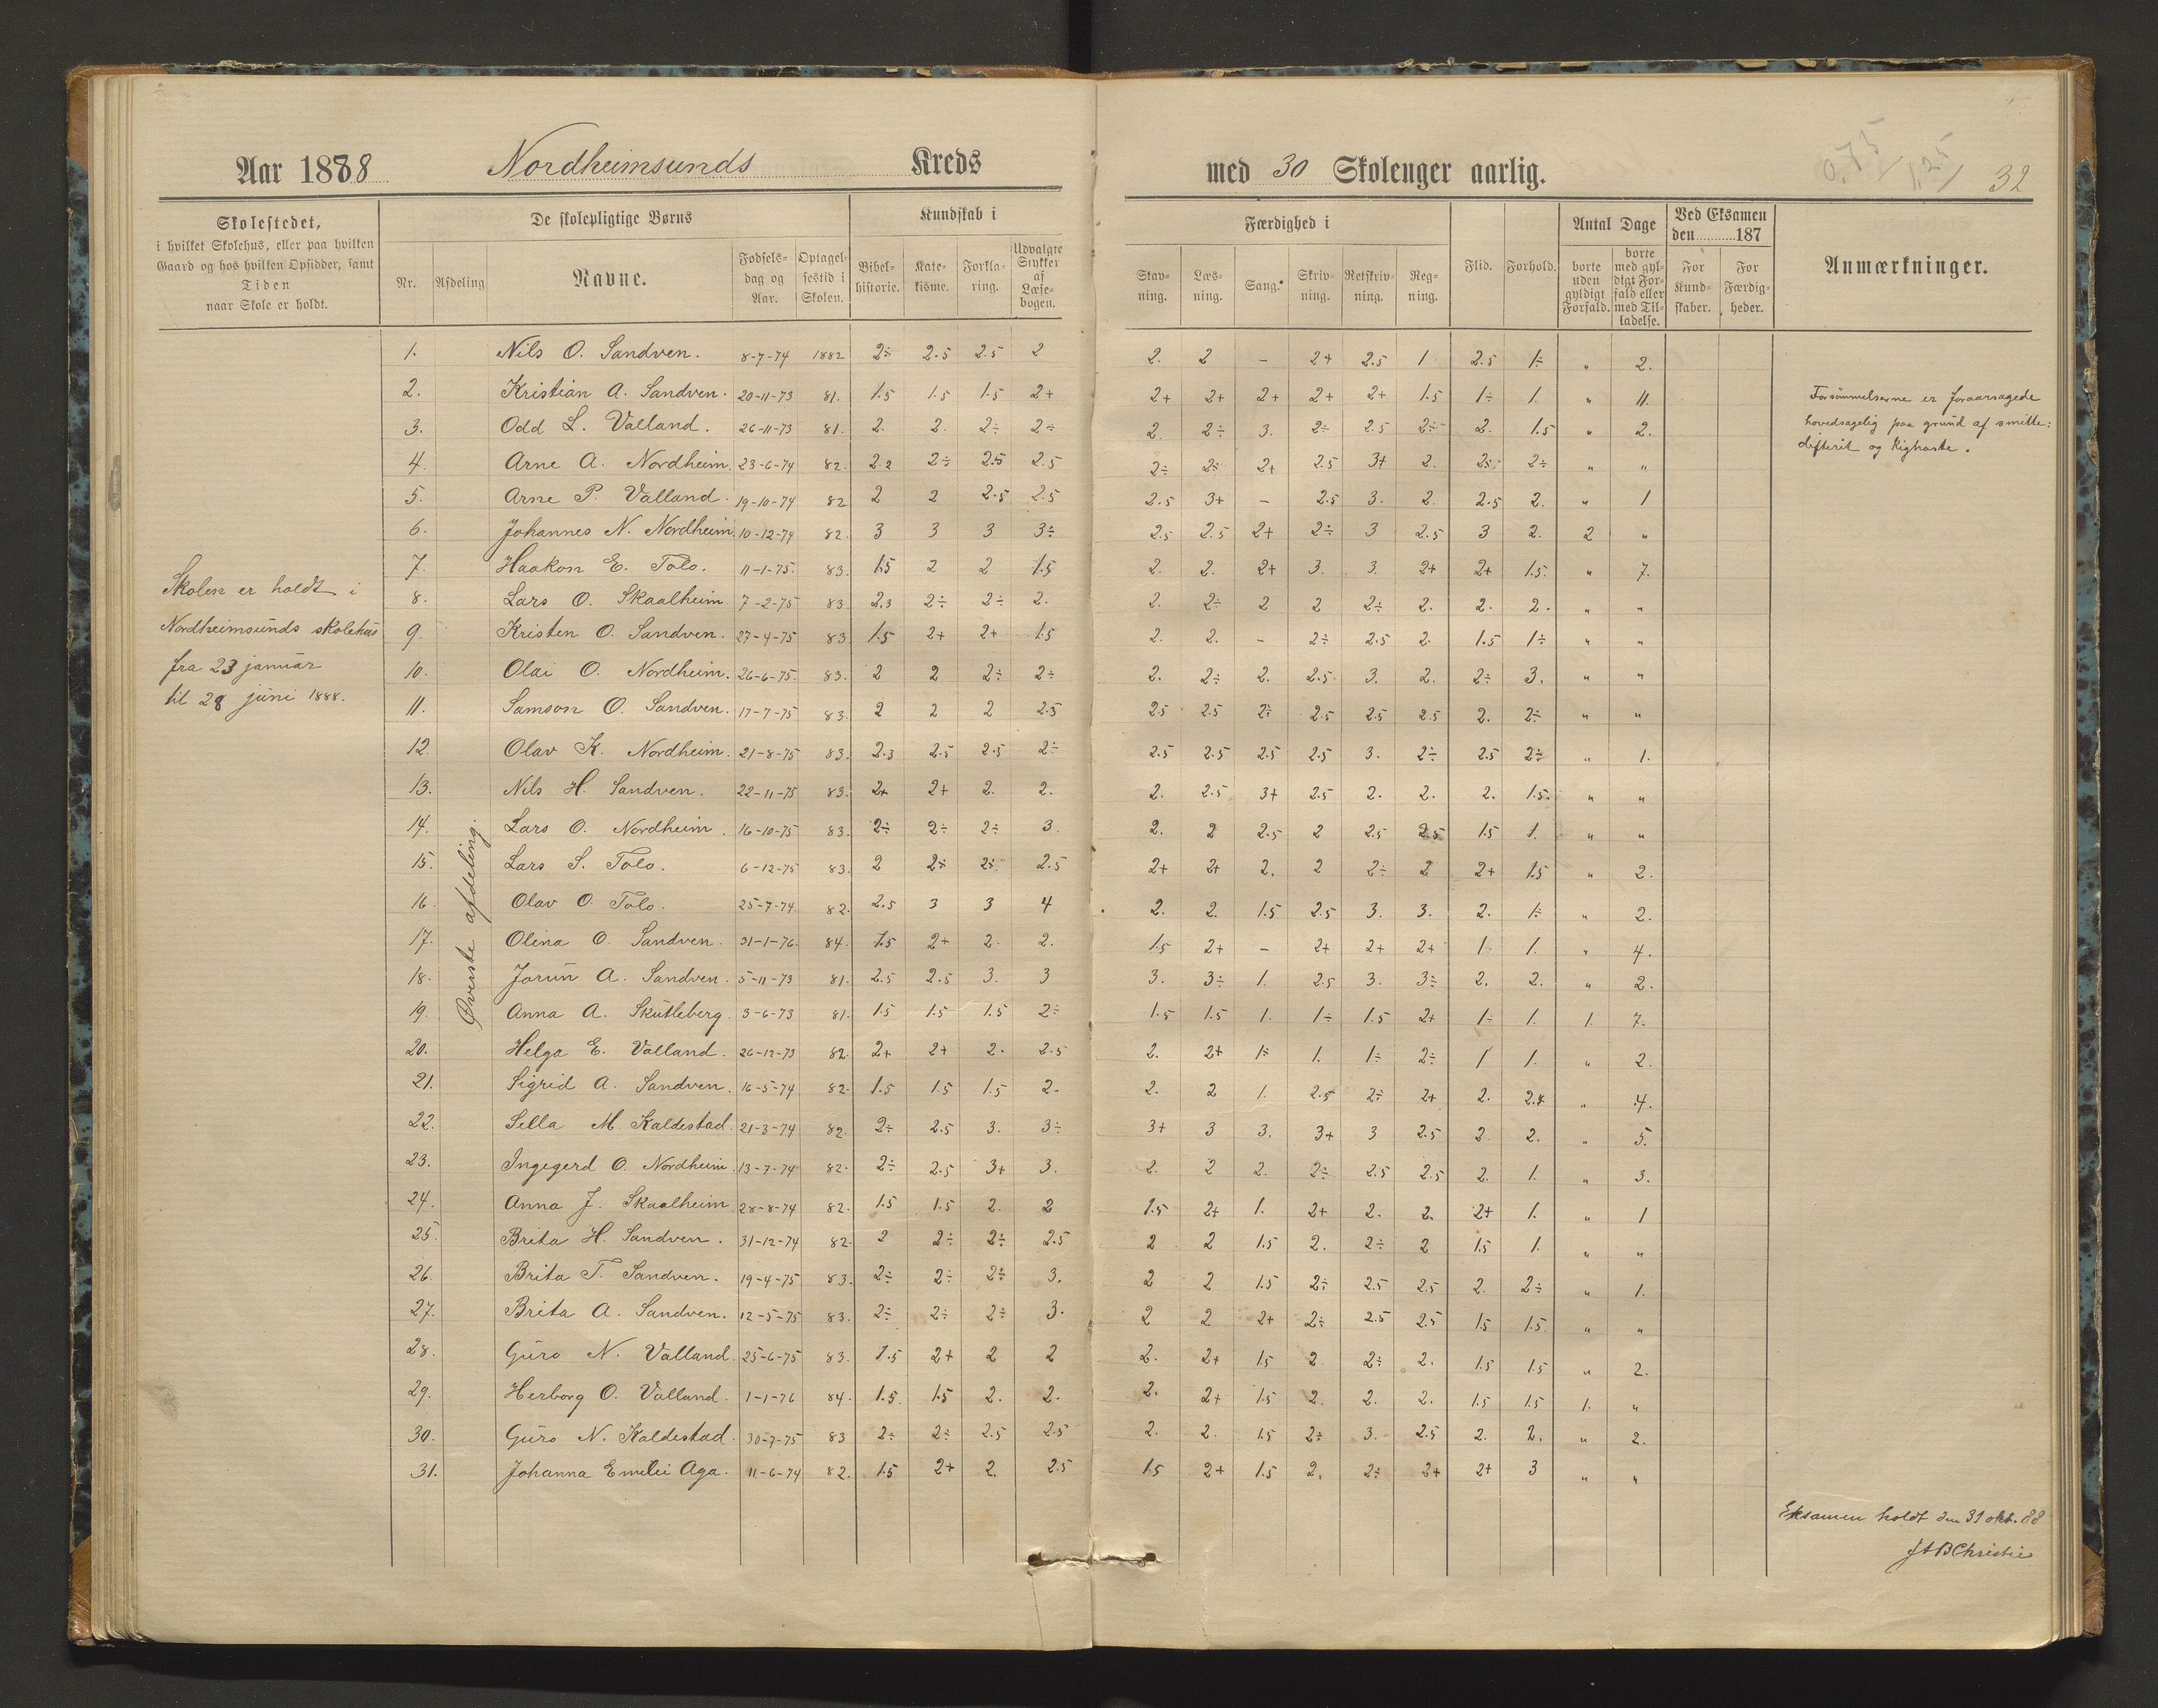 Aar 1888 Nordheimsunds Kreds
med 30 Skolenger aarlig.
0.75/ 1.25/ 32
Skolestedet,
i hvilket Skolehus, eller paa hvilken
Gaard og hos hvilken Opsidder, samt
Tiden
naar Skole er holdt.
De skolepligtige Børns
Nr. Afdeling Navne. Fødsels-dag og Aar. Optagel-sestid i Skolen.
Kundskab i
Bibel-historie. Kate-kisme. Forkla-ring. Udvalgte Stykker af Læse-bogen.
Færdighed i
Stav-ning. Læs-ning. Sang. Skriv-ning. Retskriv-ning. Reg-ning.
Flid. Forhold.
Antal Dage
borte uden gyldigt Forfald. borte med gyl-digt For-fald eller med Til-ladelse.
Ved Eksamen
den 187
For Kund-skaber. For Færdig-heder.
Anmærkninger.
Skolen er holdt i
Nordheimsunds skolehus
fra 23 januar
til 28 juni 1888.
Øverste afdeling.
1. Nils O. Sandven. 8-7-74 1882 2÷ 2.5 2.5 2 2. 2 – 2+ 2.5 1 2.5 1÷ " 2.
2. Kristian A. Sandven. 20-11-73 81. 1.5 1.5 1.5 2+ 2+ 2+ 2+ 2+ 2+ 1.5 1÷ 1. " 11.
3. Odd L. Valland. 26-11-73 81. 2. 2. 2÷ 2÷ 2. 2÷ 3. 2÷ 2.5 2÷ 2. 1.5 " 2.
4. Arne A. Nordheim. 23-6-74 82. 2.2 2÷ 2.5 2.5 2÷ 2÷ 2+ 2.5 3+ 2. 2÷ 2÷ " "
5. Arne P. Valland. 19-10-74 82 2 2 2.5 2.5 2.5 3+ – 2.5 3. 2. 2.5 2. " 1
6. Johannes N. Nordheim. 10-12-74 82. 3 3 3 3÷ 2.5 2.5 2+ 2÷ 3 2.5 3 2. 2 "
7. Haakon E. Tolo. 11-1-75. 83. 1.5 2 2 1.5 2. 2. 2+ 3. 3. 2+ 2+ 1.5. " 7.
8. Lars O. Skaalheim. 7-2-75 83. 2.3 2÷ 2÷ 2. 2. 2÷ 2 2 2÷ 2. 2. 2. " "
9. Kristen O. Sandven. 27-4-75 83. 1.5 2+ 2+ 1.5 2. 2. – 2÷ 2.5 2. 1.5 1÷ " "
10. Olai O. Nordheim. 26-6-75. 83. 2 2 2÷ 2÷ 2. 2÷ 2. 2.5 3. 2. 2÷ 3. " "
11. Samson O. Sandven. 17-7-75 83. 2 2 2 2.5 2.5 2.5 2÷ 2.5 2.5 2.5 2. 2÷ " "
12. Olav K. Nordheim. 21-8-75 83. 2.3 2.5 2.5 2÷ 2.5 2.5 2.5 2.5 3. 2÷ 2.5 2÷ " 1.
13. Nils H. Sandven. 22-11-75 83. 2+ 2+ 2. 2. 2. 2.5 3+ 2.5 2. 2. 2. 1.5. " "
14. Lars O. Nordheim. 16-10-75 83. 2÷ 2÷ 2÷ 3. 2. 2 2.5 2 2.5 2.5 1.5 1. " "
15. Lars S. Tolo. 6-12-75 83. 2 2÷ 2÷ 2.5 2+ 2+ 2. 2 2÷ 2 2+ 1.5 " 2.
16. Olav O. Tolo. 25-7-74. 82. 2.5 3 3 4 2. 2. 1.5 2.5 3. 3. 2. 1÷ " 2.
17. Olina O. Sandven. 31-1-76. 84. 1.5 2+ 2. 2. 1.5 2+ – 2+ 2+ 2+ 1 1. " 4.
18. Jorun A. Sandven. 5-11-73 81. 2.5 2.5 3. 3 3. 3÷ 1. 2.5 3. 3÷ 2. 2. " 2.
19. Anna A. Skutleberg. 3-6-73 81. 1.5 1.5 1.5 2÷ 1.5 1.5 1. 1÷ 1.5 2+ 1÷ 1. 1. 7.
20. Helga E. Valland. 26-12-73 82. 2+ 2+ 2. 2.5 2. 2+ 1÷ 1. 1÷ 2÷ 1 1. " 2.
21. Sigrid A. Sandven. 16-5-74 82. 1.5 1.5 1.5 2. 2. 2 1. 2.5 2÷ 2+ 2. " 4.
22. Sella M. Kaldestad. 21-3-74 82. 2÷ 2.5 3. 3÷ 3+ 3 3. 3+ 3 2.5 2. 2. " 5.
23. Ingegerd O. Nordheim. 13-7-74 82. 2÷ 2.5 3+ 3. 2. 2 2. 2÷ 2.5 2.5 2. 1. " 3.
24. Anna J. Skaalheim. 28-8-74 82. 1.5 1.5 2. 2 1.5 2+ 1. 2+ 2. 2. 2+ 1. " 1
25. Brita H. Sandven. 31-12-74 82. 2 2÷ 2÷ 2.5 2 2 1.5 2. 2÷ 2 1.5 1. " "
26. Brita T. Sandven. 19-4-75 83. 2÷ 2÷ 2÷ 3. 2 2 1.5 2÷ 2.5 2.5 2. 2÷ " 1.
27. Brita A. Sandven. 12-5-75 83. 2÷ 2÷ 2÷ 3. 2 2 2+ 2÷ 2.5 2.5 1.5 1.5 " "
28. Guro N. Valland. 25-6-75 83. 1.5 2+ 2 2 2. 2+ 1.5 2. 2÷ 2. 1.5 1.5 " 2.
29. Herborg O. Valland. 1-1-76 84. 1.5 1.5 2. 2. 2. 2+ 1.5 2. 2. 2. 1.5 1.5 1. "
30. Guro N. Kaldestad. 30-7-75 83 2÷ 2÷ 2.5 2.5 2. 2. 1.5 2÷ 3. 2.5 2. 2. " 2.
31. Johanna Emelei Aga. 11-6-74 82. 1.5 2+ 2. 2.5 1.5 2+ 1.5 2. 2÷ 2+ 2+ 3 " "
Forsømmelserne er foraarsagede
hovedsagelig paa grund af smitte:
difterit og Kighoste.
Eksamen holdt den 31 okt. 88
Christie